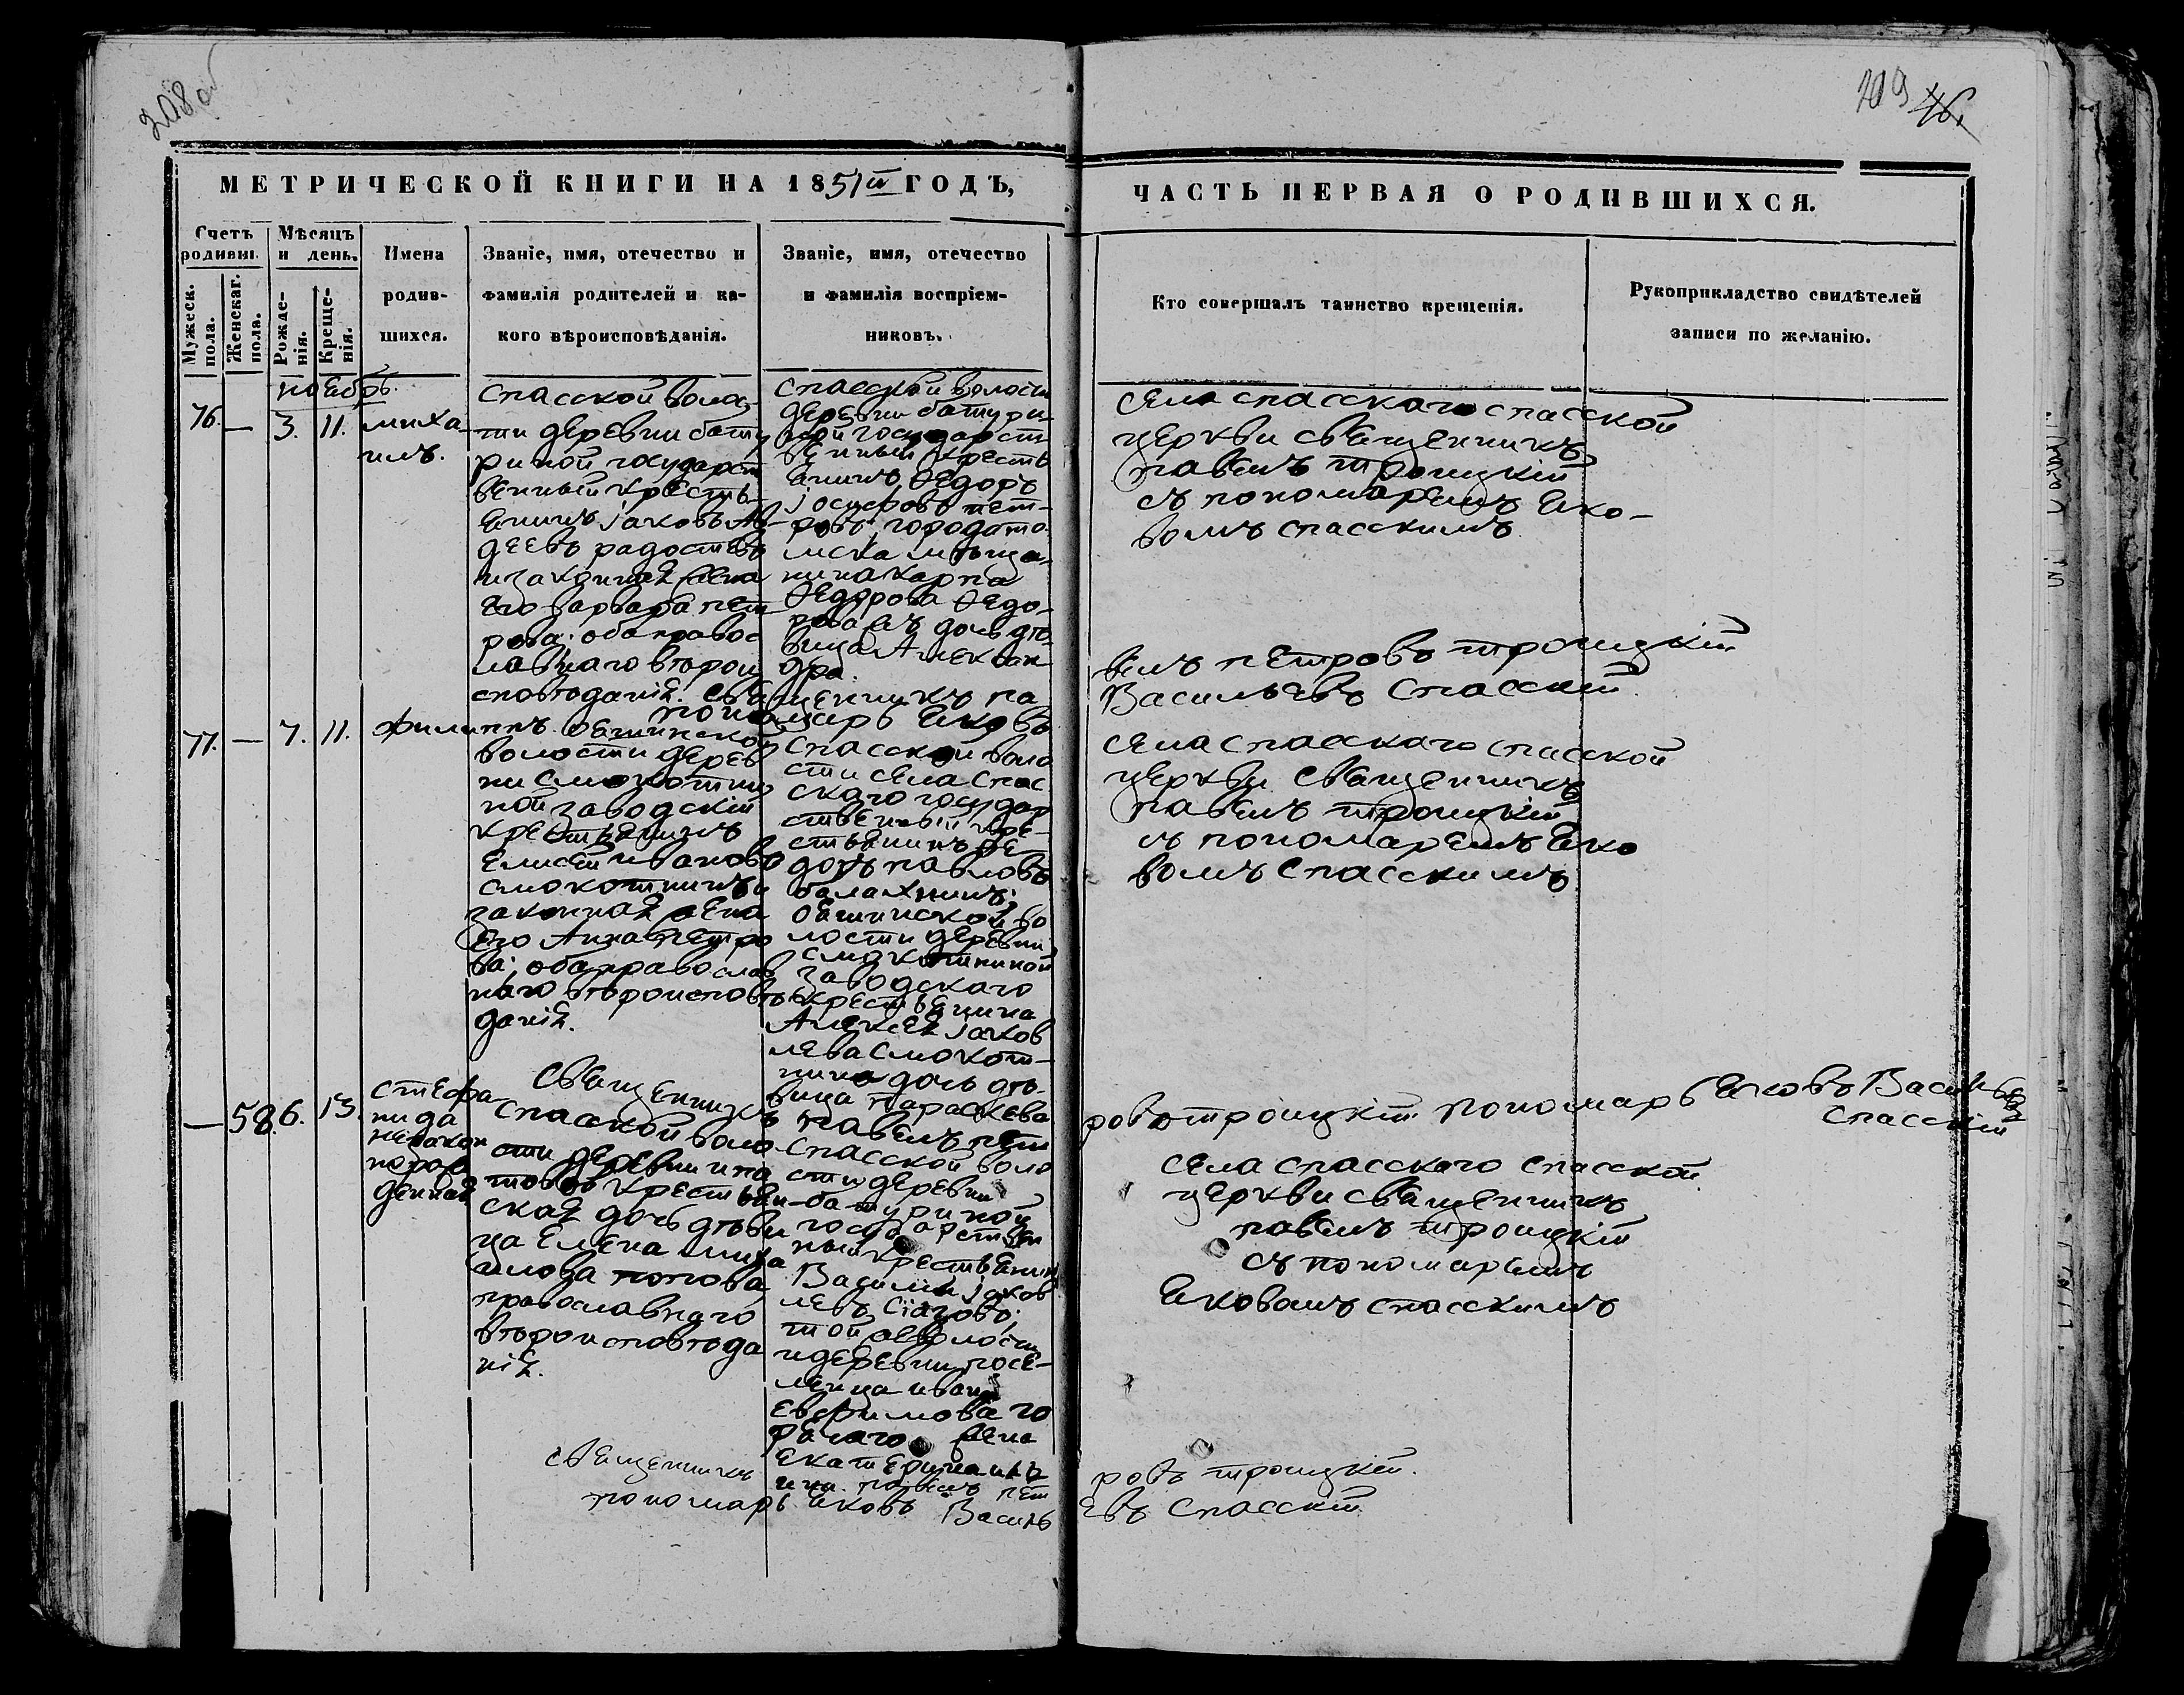 208 об
209 46.
МЕТРИЧЕСКОЙ КНИГИ НА 1851й ГОДЪ,
ЧАСТЬ ПЕРВАЯ О РОДИВШИХСЯ.
Счетъ родивш.
Мужеск. пола.
Женскаг. пола.
Мѣсяцъ и день.
Рожде-нія.
Креще-нія.
Имена
родив-
шихся.
Званіе, имя, отечество и
фамилія родителей и ка-
кого вѣроисповѣданія.
Званіе, имя, отечество
и фамилія воспріем-
никовъ.
Кто совершалъ таинство крещенія.
Рукоприкладство свидѣтелей
записи по желанію.
ноябрь.
76. — 3. 11.
миха-
илъ.
спасской волос
ти деревни бату
риной государст
венный кресть-
янинъ іаковъ Ав-
деевъ радостевъ
и законная жена
его варвара пет
рова; оба правос
лавнаго вѣрои
сповѣданія.
спасской волости
деревни батури-
ной государст
венный кресть
янинъ Ѳедоръ
іосифовъ пет-
ровъ; города то-
мска мѣща-
нина карпа
Ѳедорова Ѳедо-
рова дочь дѣ-
вица Алексан-
дра.
села спасскаго спасской
церкви священникъ
павелъ троицкій
съ пономаремъ яко-
вомъ спасскимъ
священникъ павелъ петровъ троицкій
пономарь яковъ Васильевъ Спасскій
77. — 7. 11.
филиппъ.
волости дерев
ни смокотни
ной заводскій
крестьянинъ
елисей ивановъ
смокотнинъ и
законная жена
его Анна петро
ва; оба православ
наго вѣроисповѣ
данія.
спасской воло
сти села спас
скаго государ
ственный кре-
стьянинъ Ѳе
доръ павловъ
балахнинъ;
лости деревни
смокотниной
заводскаго
крестьянина
Алексея іаков
лева смокот-
нина дочь дѣ-
вица параскева
села спасскаго спасской
церкви священникъ
павелъ троицкій
съ пономаремъ яко
вомъ спасскимъ
священникъ павелъ петровъ троицкій пономарь яковъ Васильевъ
спасскій
— 58. 6. 13.
стефа-
нида
незакон
норож
денная
спасской воло
сти деревни ипа
товой крестьян-
ская дочь дѣви
ца Елена миха
илова попова
православнаго
вѣроисповѣда
нія.
спасской воло
сти деревни
батуриной
государствен
ный крестьянин
Василій іаков
левъ
той же волости
и деревни посе-
ленца ивана
Евфимова го
жена
екатерина
села спасскаго спасской
церкви священникъ
павелъ троицкій
съ пономаремъ
яковомъ спасскимъ
священникъ павелъ петровъ троицкій.
пономарь яковъ Васильевъ спасскій